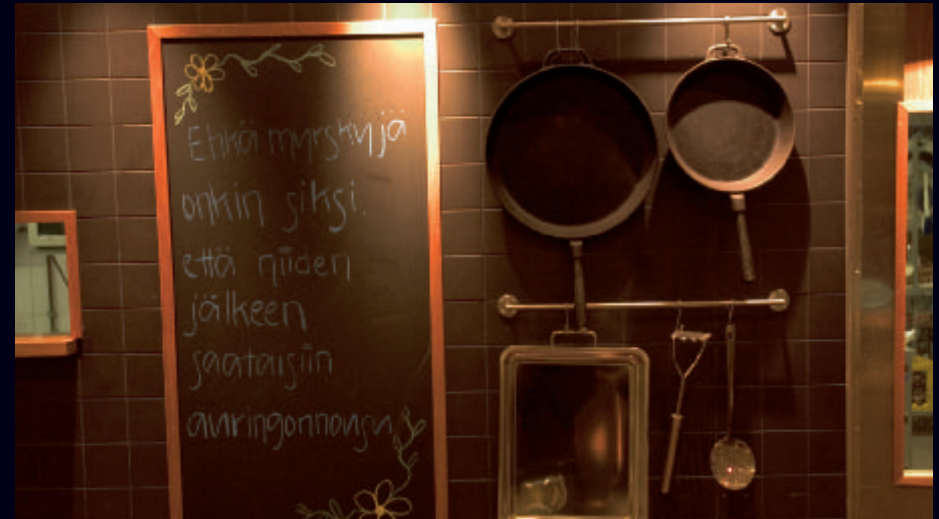 Ehkä myrskyjä
onkin siksi,
että niiden
jälkeen
saataisiin
auringonnousu